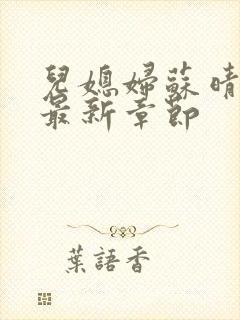 兒媳婦蘇晴
最新章節
葉語香